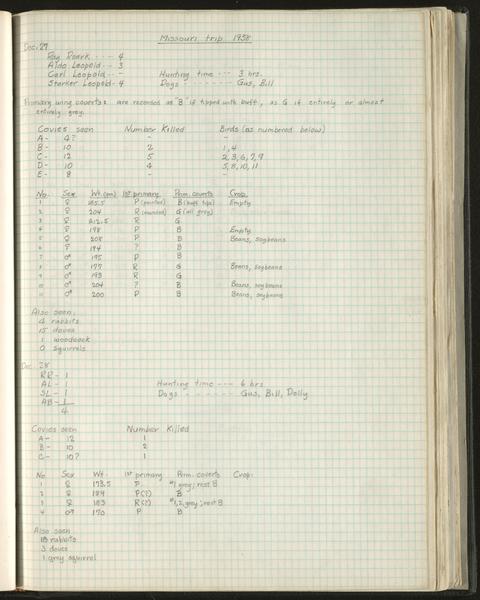 Missouri trip 1938
Dec. 27
Ray Roark --- 4
Aldo Leopold -- 3
Carl Leopold -- -
Starker Leopold - 4
Hunting time --- 3 hrs.
Dogs - - - - - - - Gus, Bill
Primary wing coverts: are recorded as "B" if tipped with buff, as G if entirely or almost
entirely grey.
Covies seen Number Killed Birds (as numbered below)
A- 4? - -
B- 10 2 1, 4
C- 12 5 2, 3, 6, 7, 9
D- 10 4 5, 8, 10, 11
E- 8 - -
No. Sex Wt. (gm) 1st primary Prim. coverts Crop
1 ♀ P (pointed) B (buff tips) Empty
2 ♀ 204 R (rounded) G (all grey)
3 ♀ 212.5 R G
4 ♀ 198 P B Empty
5 ♀ 208 P B Beans, soybeans
6 ♀ 194 ? B
7 ♂ 195 P B
8 ♂ 177 R G Beans, soybeans
9 ♂ 193 R G
10 ♂ 204 ? B Beans, soybeans
11 ♂ 200 P B Beans, soybeans
Also seen:
4 rabbits
15 doves
1 woodcock
0 squirrels
Dec. 28
RR - 1
AL - 1
SL - 1
AB - 1
4
Hunting time --- 6 hrs
Dogs - - - - - - - Gus, Bill, Dolly
Covies seen Number Killed
A- 12 1
B- 10 2
C- 10? 1
No Sex Wt. 1st primary Prim. coverts Crop:
1 ♀ 173.5 P #1 grey; rest B
2 ♀ 189 P(?) B
3 ♀ 183 R(?) #1,2 grey; rest B
4 ♂ 170 P B
Also seen
18 rabbits
3 doves
1 grey squirrel